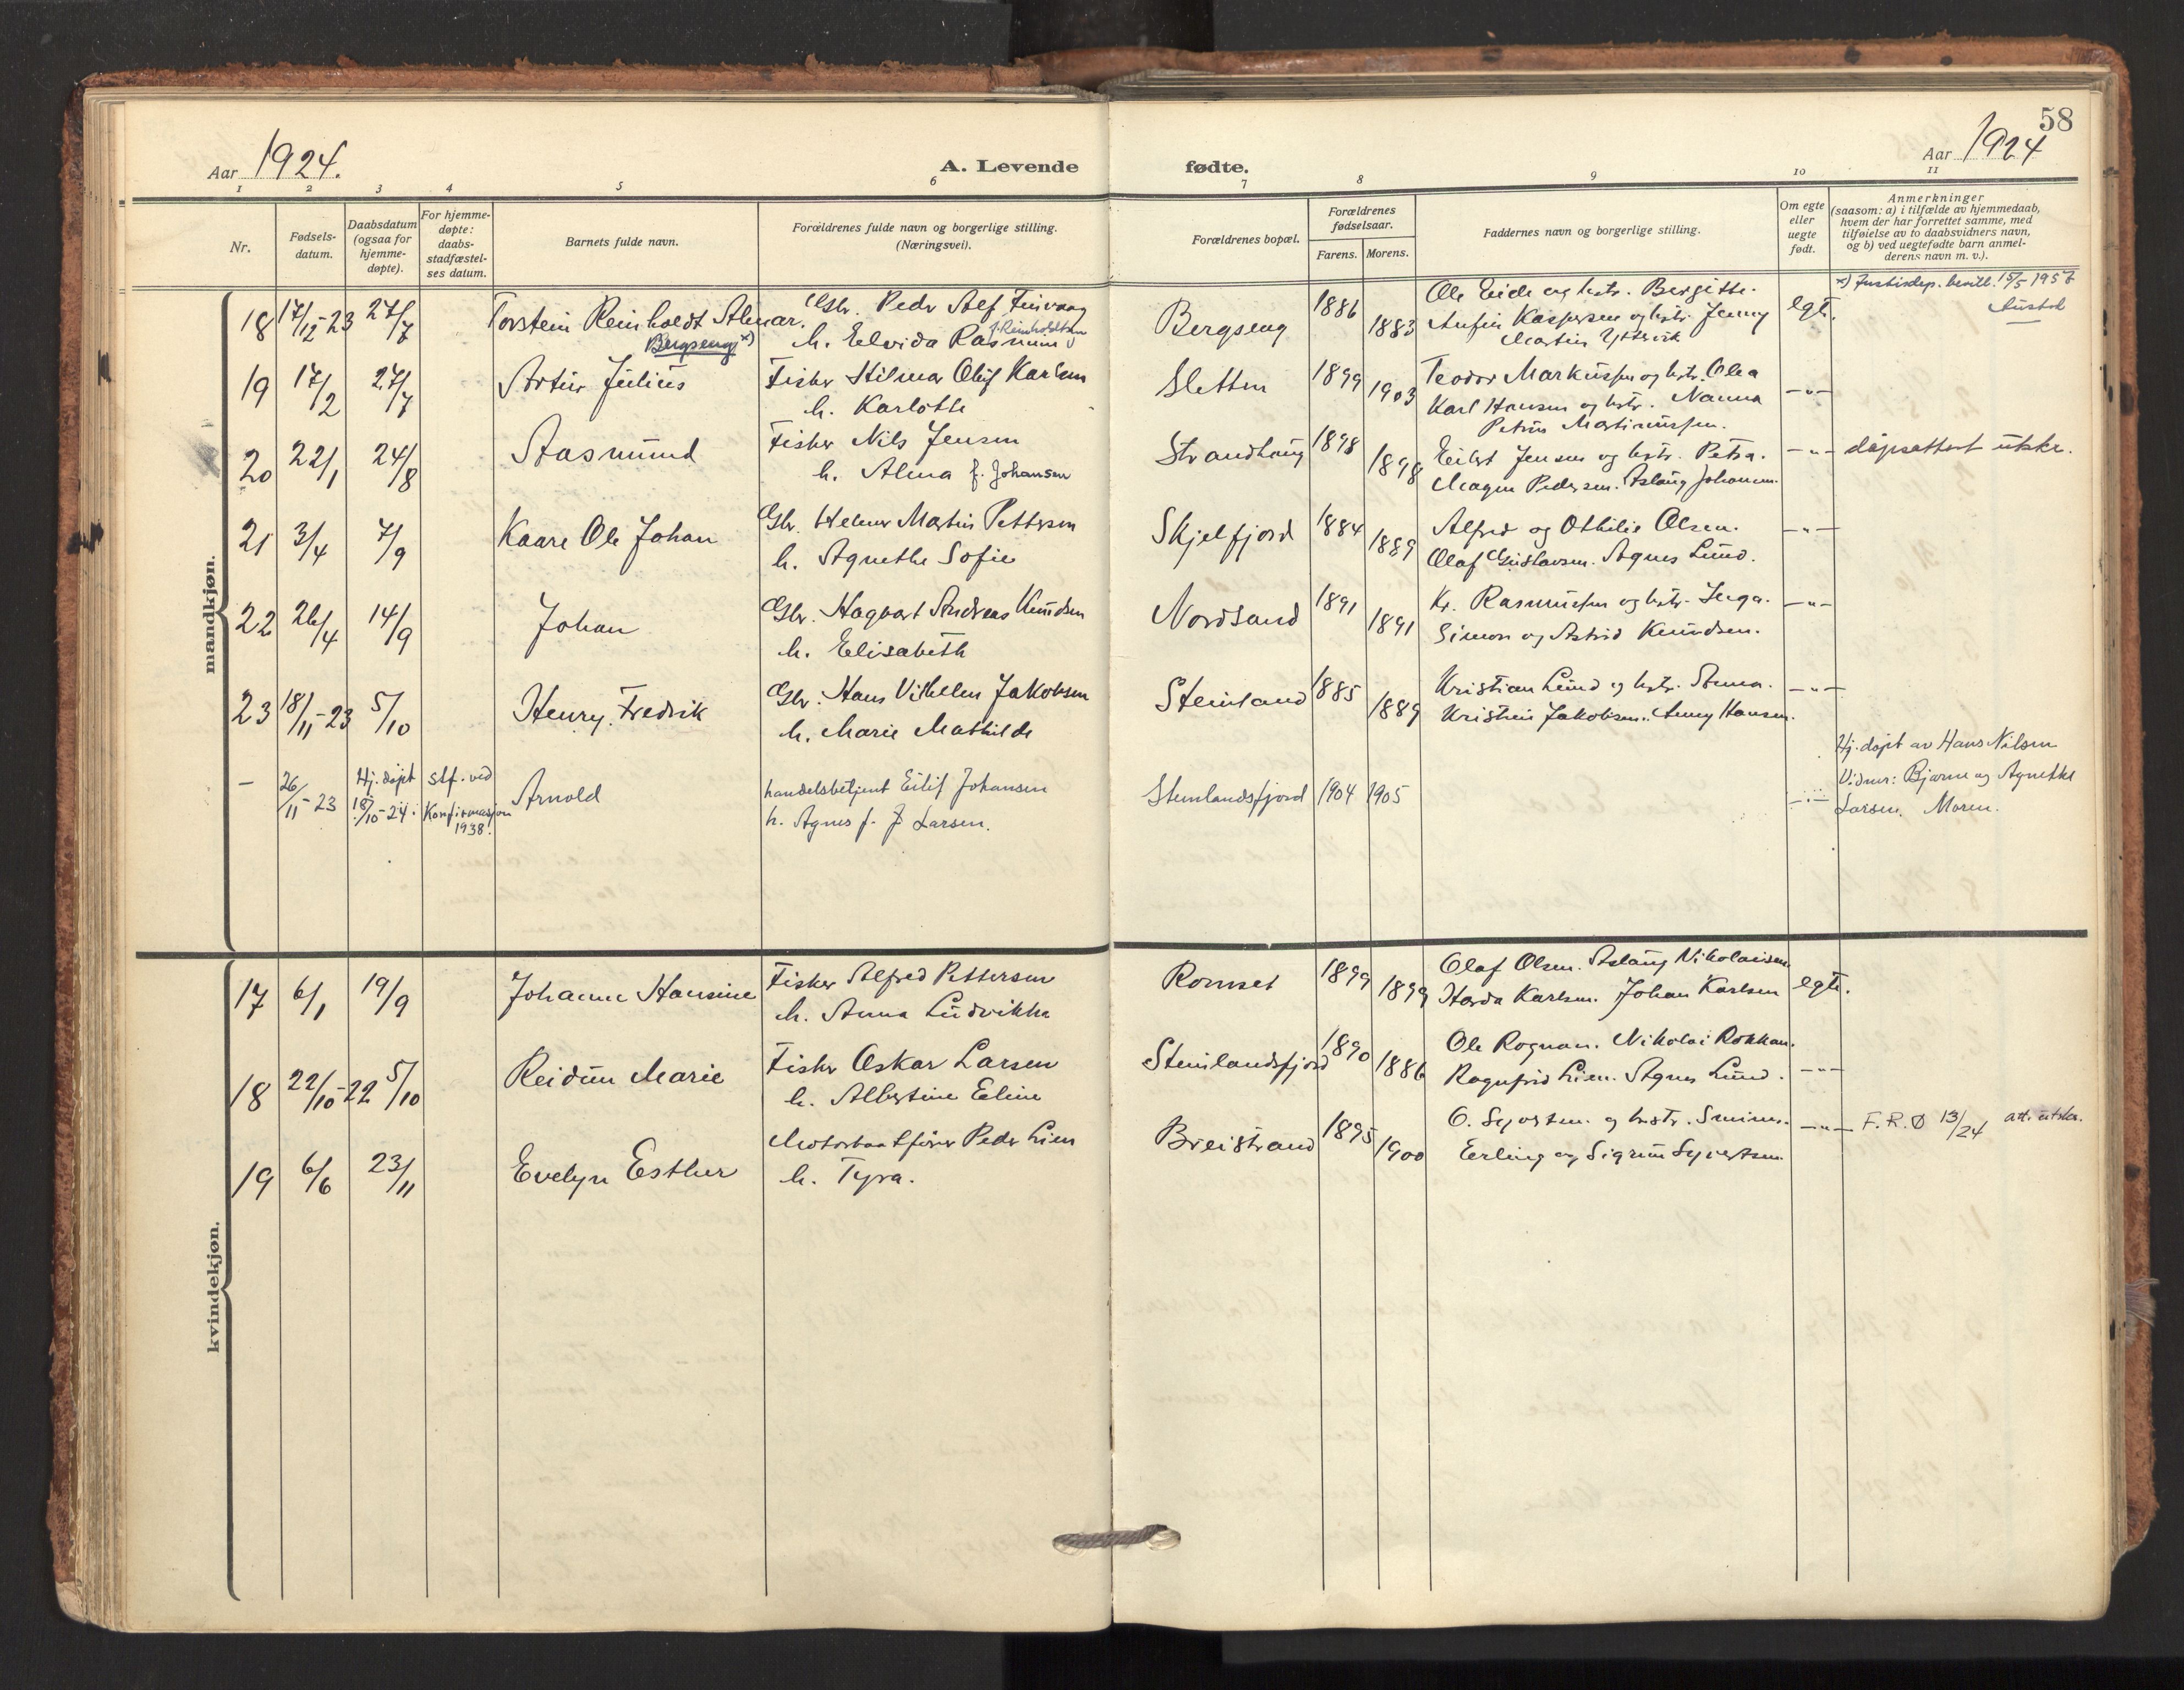 58
Aar 1924.
A. Levende
fødte.
Aar 1924
1 2 3 4 5 6 7 8 9 10 11
Nr.
Fødsels-
datum.
Daabsdatum
(ogsaa for
hjemme-
døpte).
For hjemme-
døpte:
daabs-
stadfæstel-
ses datum.
Barnets fulde navn.
Forældrenes fulde navn og borgerlige stilling.
(Næringsvei).
Forældrenes bopæl.
Forældrenes
fødselsaar.
Farens. Morens.
Faddernes navn og borgerlige stilling.
Om egte
eller
uegte
født.
Anmerkninger
(saasom: a) i tilfælde av hjemmedaab,
hvem der har forrettet samme, med
tilføielse av to daabsvidners navn,
og b) ved uegtefødte barn anmel-
derens navn m. v.).
mandkjøn.
18 17/12-23 27/7 Torstein Reinholdt Almar. Gbr. Peder Alf Finvaag Bergseng 1886 Ole Eide og hstr. Bergitte. egte. x) Justisdep. bevill. 15/5 1957
Bergseng x) h. Elvida Rasmum f. Reinholdtsen 1883 Anfin Kaspersen og hstr. Jenny
Martin Yttervik
19 17/2 27/7 Artur Julius Fisker Hilmar Oluf Karlsen Sletten 1899 Teodor Markussen og hstr. Olea —"—
h. Karlotte 1903 Karl Hansen og hstr. Nanna
Petrus Matinussen.
20 22/1 24/8 Aasmund Fisker Nils Jensen Strandhaug 1898 Eilert Jensen og hstr. Petra. —"— dåpsattest utskr.
h. Alma f. Johansen 1898 Magna Pedersen. Aslaug Johansen.
21 3/4 7/9 Kaare Ole Johan Gbr. Helmer Martin Pettersen Skjelfjord 1884 Alfred og Othilie Olsen. —"—
h. Agnethe Sofie 1889 Olaf Gustavsen. Agnes Lund.
22 26/4 14/9 Johan Gbr. Hagbart Andreas Knudsen Nordsand 1891 Kr. Rasmussen og hstr. Inga. —"—
h. Elisabeth 1891 Simon og Astrid Knudsen.
23 18/11-23 5/10 Henry Fredrik Gbr. Hans Vilhelm Jakobsen Steinland 1885 Kristian Lund og hstr. Anna. —"—
h. Marie Mathilde 1889 Kristine Jakobsen. Anny Hansen.
– 26/11-23 Hj. døpt 18/10-24. Stf. ved Konfirmasjon 1938. Arnold handelsbetjent Eilif Johansen Steinlandsfjord 1904 1905 —"— Hj. døpt av Hans Nilsen
h. Agnes f. J Larsen. Vidner: Bjarne og Agnethe
Larsen. Moren.
kvindekjøn.
17 6/1 19/9 Johanne Hansine Fisker Alfred Pettersen Romset 1899 Olaf Olsen. Aslaug Nikolaisen. egte.
h. Anna Ludvikke 1899 Harda Karlsen. Johan Karlsen
18 22/10-22 5/10 Reidun Marie Fisker Oskar Larsen Steinlandsfjord 1890 Ole Rognan. Nikolai Rokkan. —"—
h. Albertine Eline 1886 Ragnfrid Lien. Agnes Lund.
19 6/6 23/11 Evelyn Esther Motorbaatfører Peder Lien Breistrand 1895 O. Syversen. og hustr. —"— F.R.Ø 13/24 att. utskr.
h. Tyra. 1900 Erling og Sigrun Syvertsen